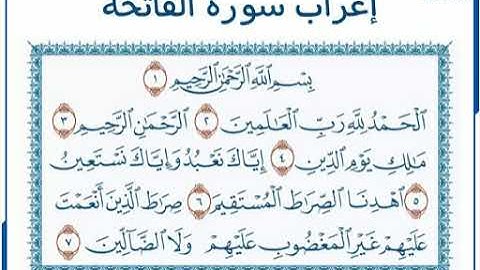 إعراب سورة الفاتحة
بِسْمِ اللَّهِ الرَّحْمَٰنِ الرَّحِيمِ ١
الْحَمْدُ لِلَّهِ رَبِّ الْعَالَمِينَ ٢ الرَّحْمَٰنِ الرَّحِيمِ ٣
مَالِكِ يَوْمِ الدِّينِ ٤ إِيَّاكَ نَعْبُدُ وَإِيَّاكَ نَسْتَعِينُ
٥ اهْدِنَا الصِّرَاطَ الْمُسْتَقِيمَ ٦ صِرَاطَ الَّذِينَ أَنْعَمْتَ
عَلَيْهِمْ غَيْرِ الْمَغْضُوبِ عَلَيْهِمْ وَلَا الضَّالِّينَ ٧